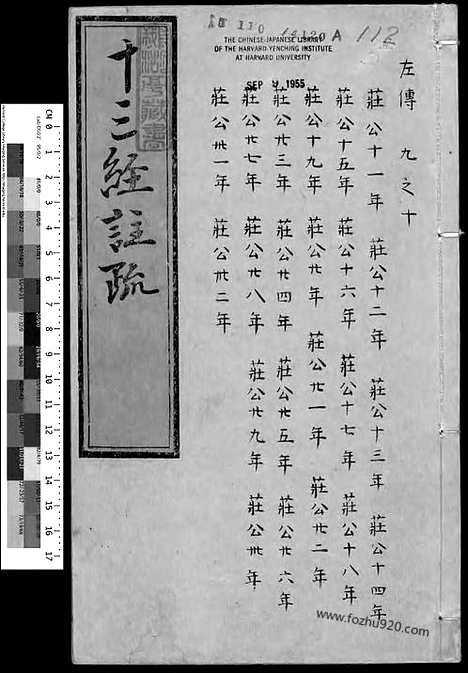 110
112
THE CHINESE-JAPANESE LIBRARY
OF THE HARVARD-YENCHING INSTITUTE
AT HARVARD UNIVERSITY
SEP 9 1955
左傳 九之十
莊公十一年 莊公十二年 莊公十三年 莊公十四年
莊公十五年 莊公十六年 莊公十七年 莊公十八年
莊公十九年 莊公廿年 莊公廿一年 莊公廿二年
莊公廿三年 莊公廿四年 莊公廿五年 莊公廿六年
莊公廿七年 莊公廿八年 莊公廿九年 莊公卅年
莊公卅一年 莊公卅二年
十三經註疏
CM 0 1 2 3 4 5 6 7 8 9 10 11 12 13 14 15 16 17
www.fozhu920.com